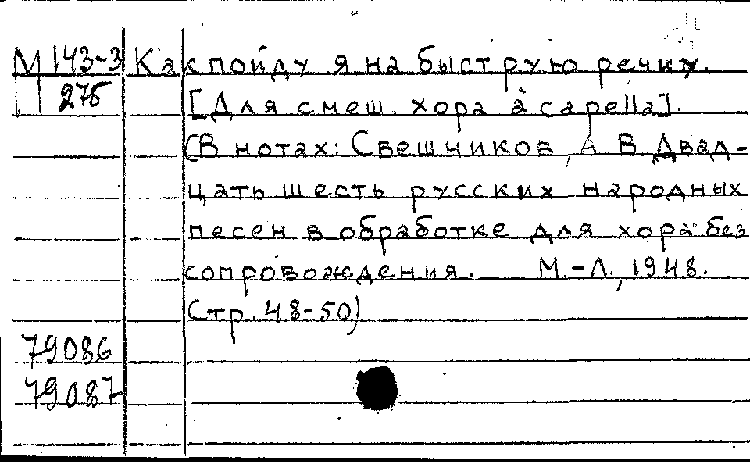 М 143-3 Как пойду я на быструю речку.
275 [Для смеш. хора à capella].
(В нотах: Свешников, А. В. Двад-
цать шесть русских народных
песен в обработке для хора без
сопровождения. М.-Л., 1948.
Стр. 48-50)
79086
79087